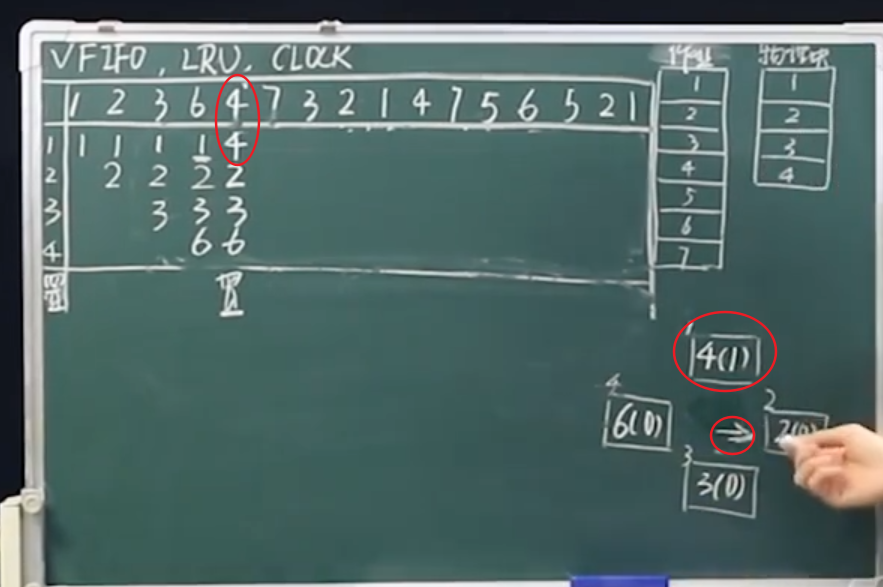 √FIFO, LRU, CLOCK
1 2 3 6 4 7 3 2 1 4 7 5 6 5 2 1
1 1 1 1 1 4
2 2 2 2 2
3 3 3 3
4 6 6
置 置
1
2
3
4
5
6
7
物理块
1
2
3
4
1
4(1)
4
6(0)
⇒
2
2(0)
3
3(0)